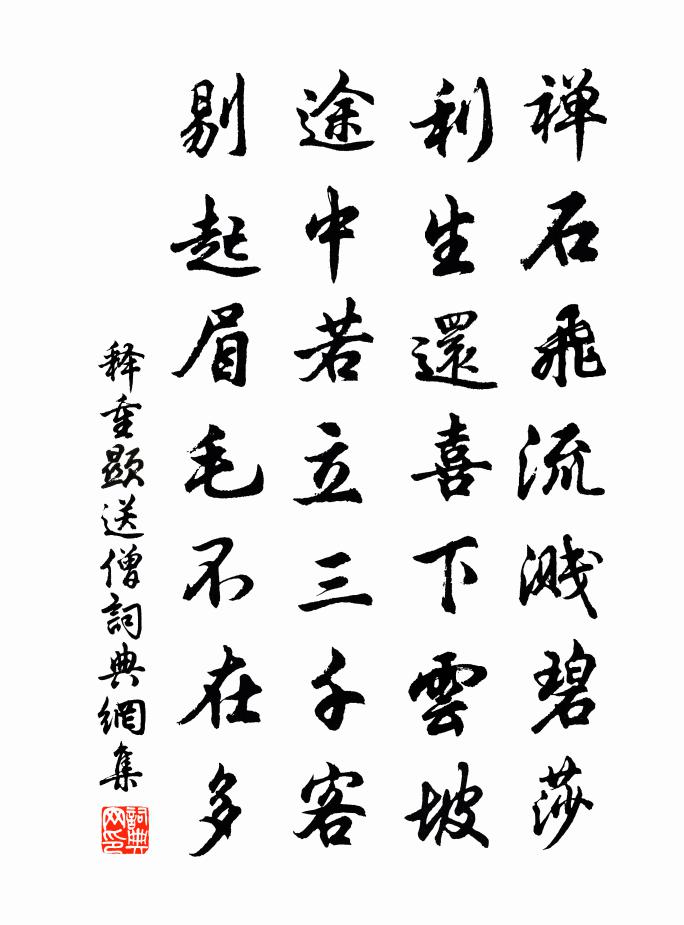 禅石飛流溅碧莎
利生還喜下雲坡
途中若立三千客
剔起眉毛不在多
释重顯送僧詞典網集
詞典网印